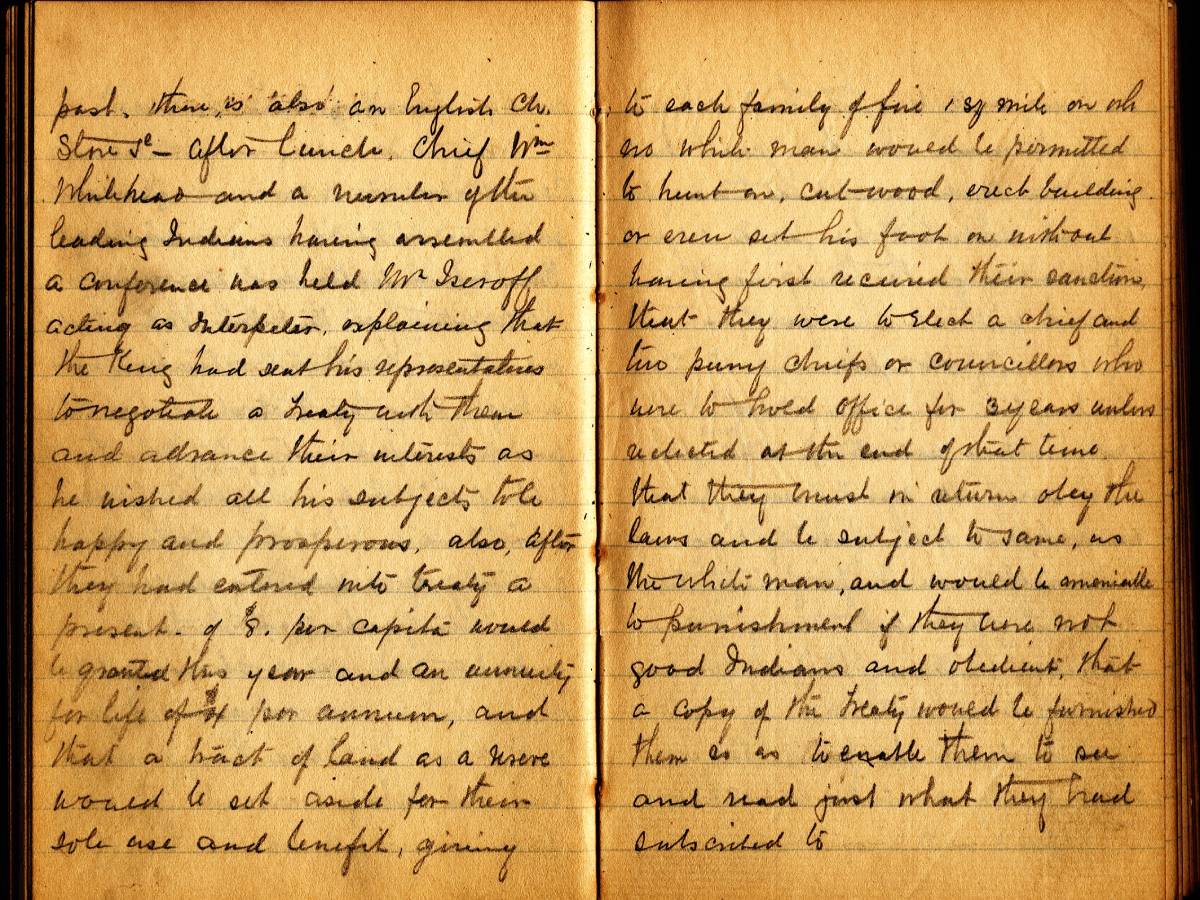 post. there is also an English Ch.
Store &c - After lunch, Chief Wm
Whitehead and a number of the
leading Indians having assembled
a conference was held Mr Iserhoff
acting as Interpeter, explaining that
the King had sent his representatives
to negotiate a Treaty with them
and advance their interests as
he wished all his subjects to be
happy and prosperous, also, after
they had entered into treaty a
present - of $8. per capita would
be granted this year and an annuity
for life of $4 per annum, and
that a tract of land as a reserve
would be set aside for their
sole use and benefit, giving
to each family of five 1 sq mile on wh
no white man would be permitted
to hunt on, cut wood, erect building
or even set his foot on without
having first received their sanction,
that they were to elect a chief and
two puny chiefs or councillors who
were to hold office for 3 years unless
relected at the end of that time.
that they must in return obey the
laws and be subject to same, as
the white man, and would be ameniable
to punishment if they were not
good Indians and obedient, that
a copy of the Treaty would be furnished
them so as to enable them to see
and read just what they had
subscribed to